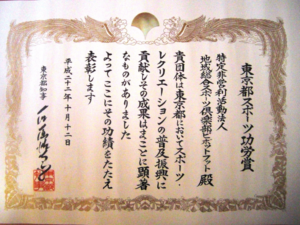 東京都スポーツ功労賞
特定非営利活動法人
地域総合スポーツ倶楽部ピボットフット 殿
貴団体は東京都においてスポーツ・
レクリエーションの普及振興に
貢献しその成果はまことに顕著
なものがありました
よってここにその功績をたたえ
表彰します
平成二十二年十月十二日
東京都知事